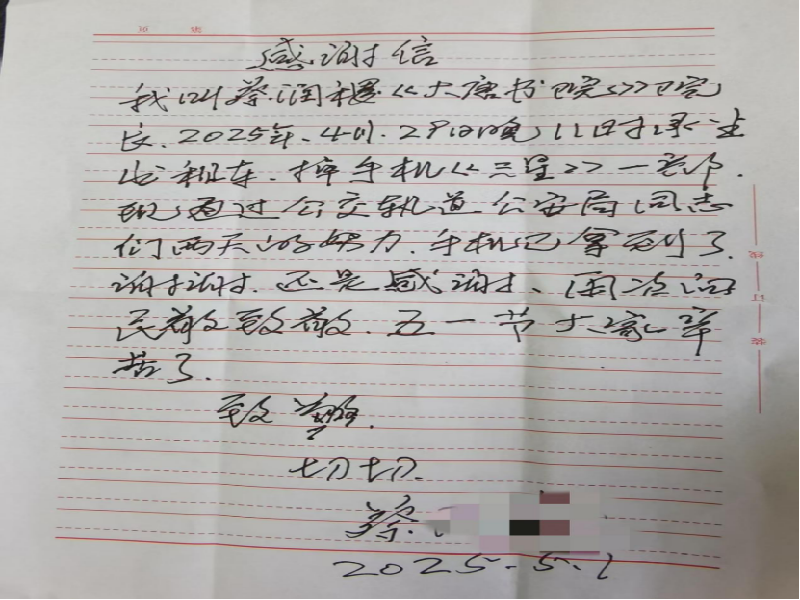 感谢信
我叫蔡润《大唐书院》院
长.2025年.4月.29日晚11时乘坐
出租车.掉手机《三星》一部.
现通过公交轨道公安局同志
们两天的努力.手机已拿到了.
谢谢.还是感谢、向
民敬致敬.五一节大家辛
苦了.
致
切切.
蔡
2025.5.1